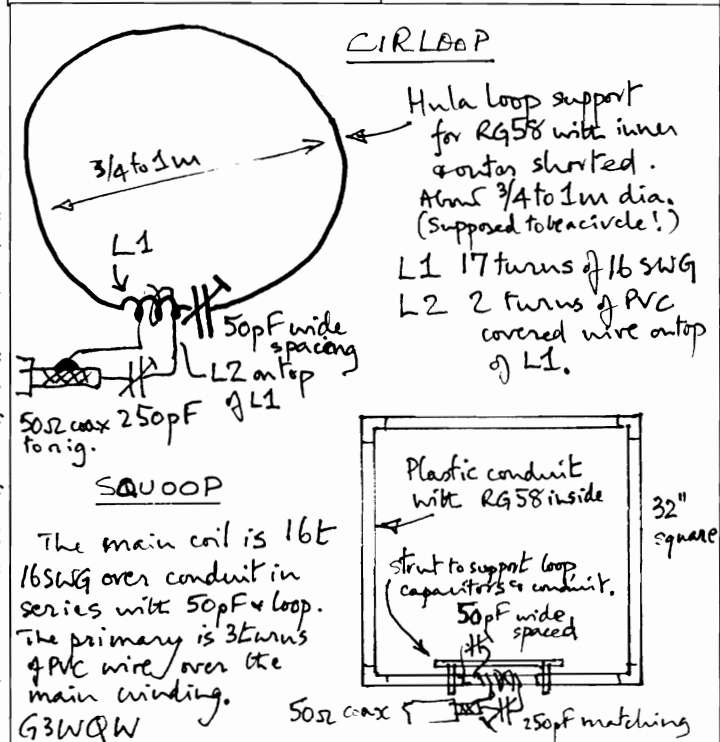 CIRLOOP
Hula loop support
for RG58 with inner
& outer shorted.
About 3/4 to 1m dia.
(Supposed to be a circle!)
L1 17 turns of 16 SWG
L2 2 turns of PVC
covered wire on top
of L1.
3/4 to 1m
L1
50pF wide
spacing
L2 on top
of L1
50Ω coax
to rig.
250pF
SQUOOP
The main coil is 16t
16SWG over conduit in
series with 50pF & loop.
The primary is 3turns
of PVC wire over the
main winding.
G3WQW
Plastic conduit
with RG58 inside
32"
square
strut to support loop
capacitors & conduit.
50pF wide
spaced
50Ω coax
250pF matching